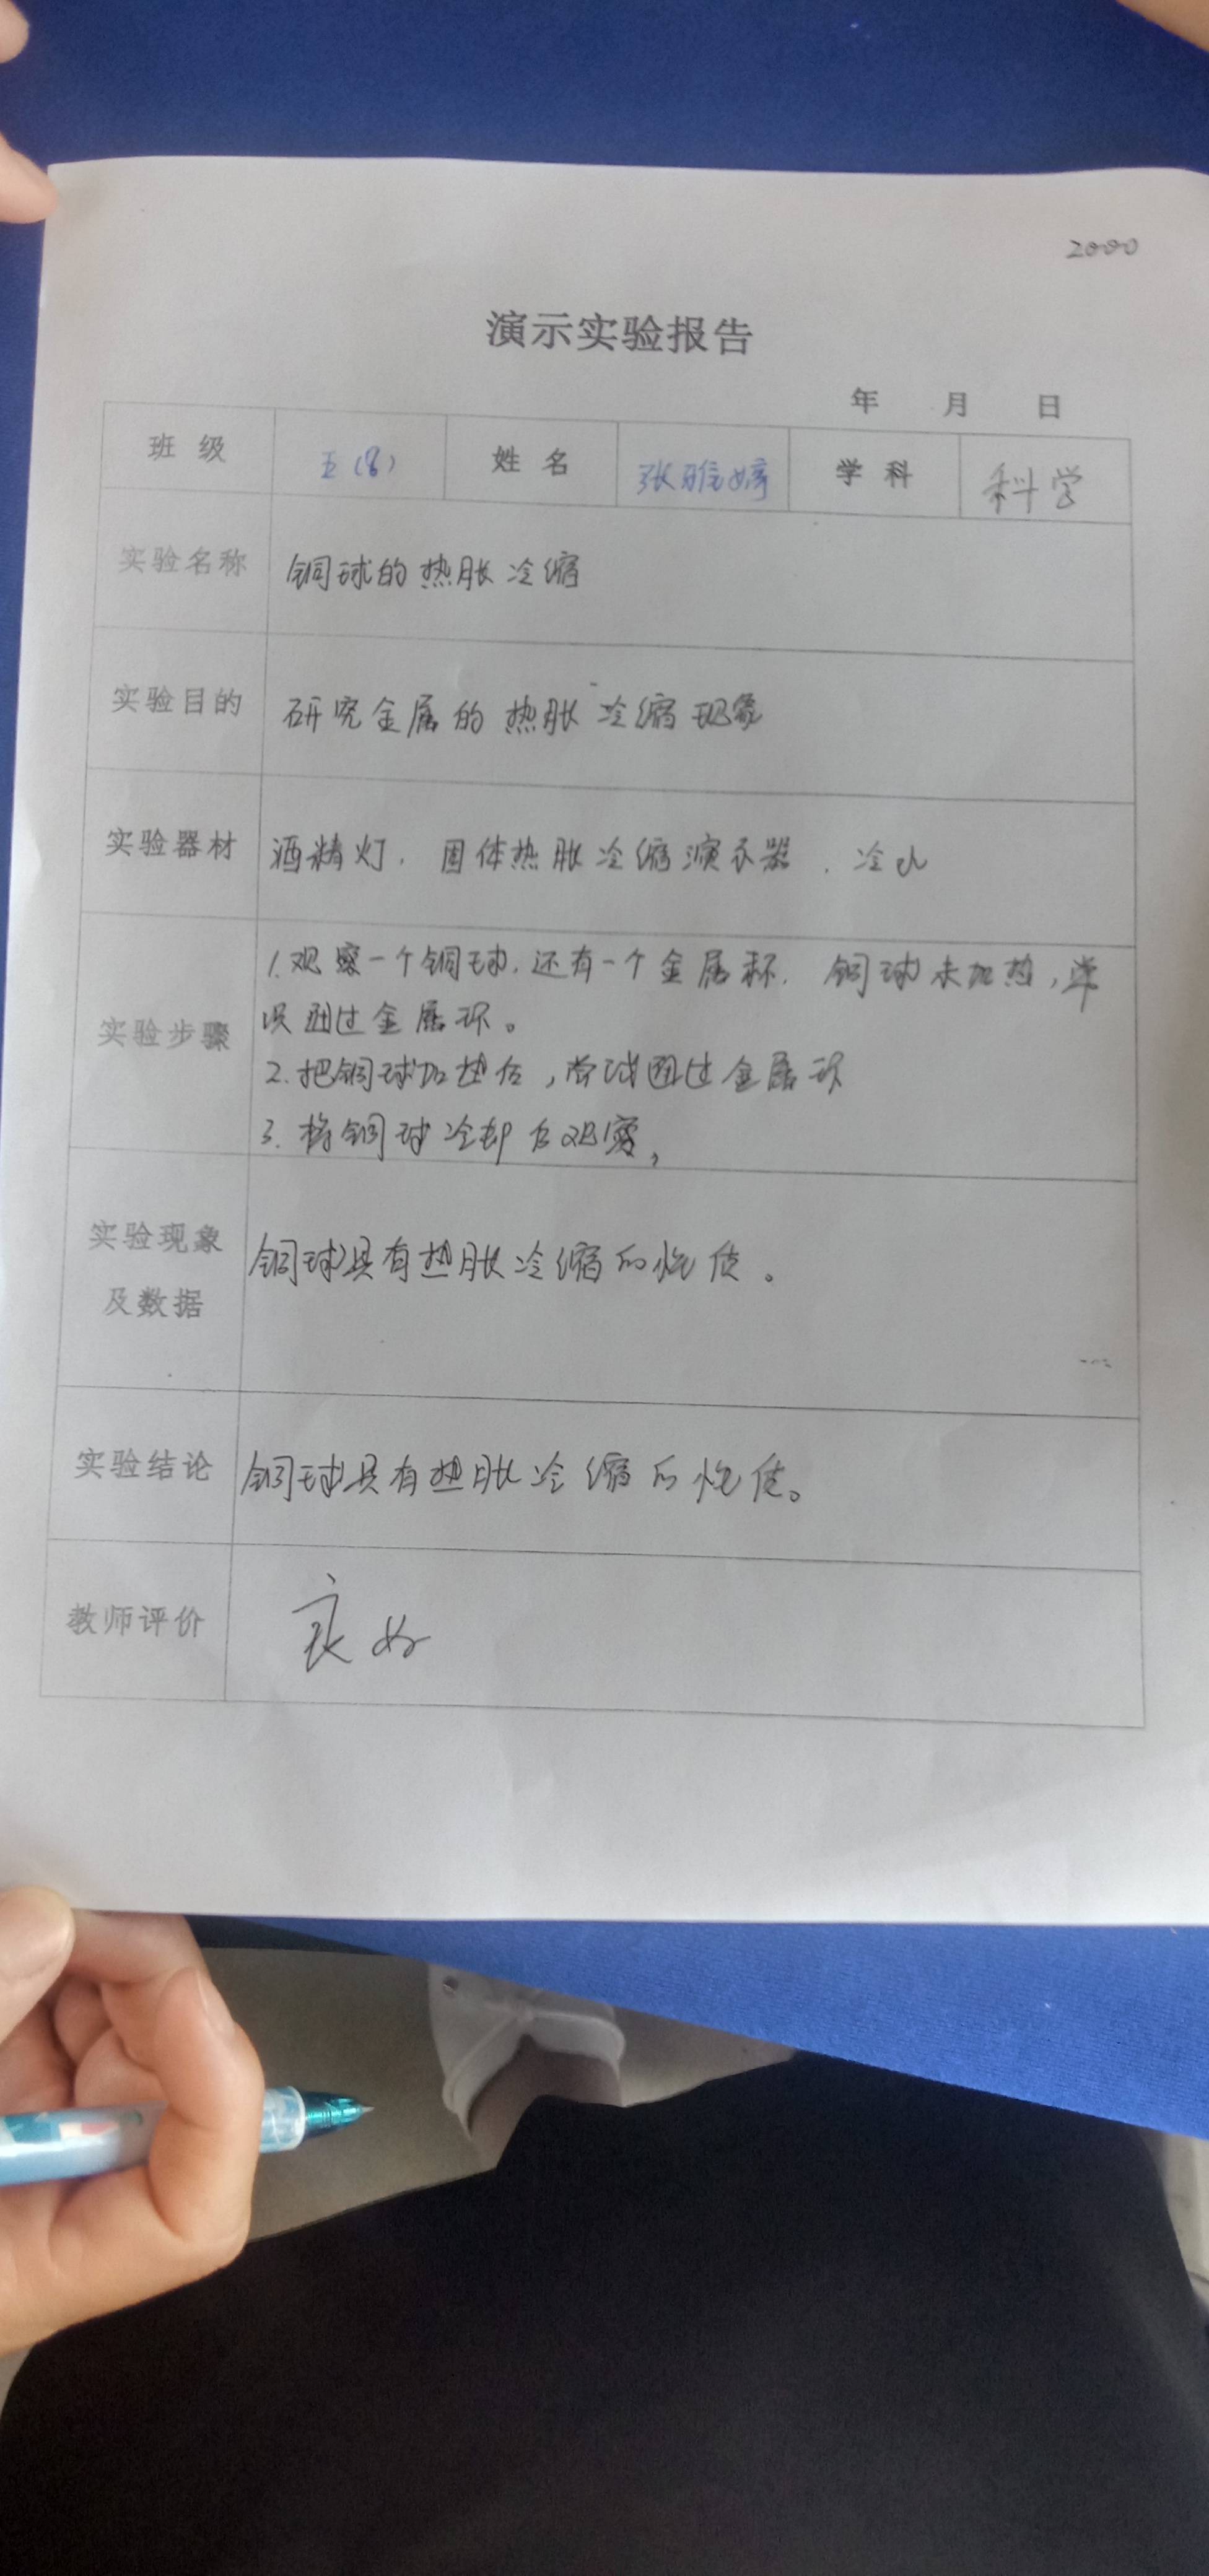 2000
演示实验报告
年 月 日
班 级 五(8) 姓 名 张雅婷 学 科 科学
实验名称 铜球的热胀冷缩
实验目的 研究金属的热胀冷缩现象
实验器材 酒精灯. 固体热胀冷缩演示器. 冷水
实验步骤
1.观察一个铜球.还有一个金属环. 铜球未加热,尝
试通过金属环。
2.把铜球加热后,尝试通过金属环
3.将铜球冷却后观察,
实验现象
及数据
铜球具有热胀冷缩的性质。
实验结论 铜球具有热胀冷缩的性质。
教师评价 良好